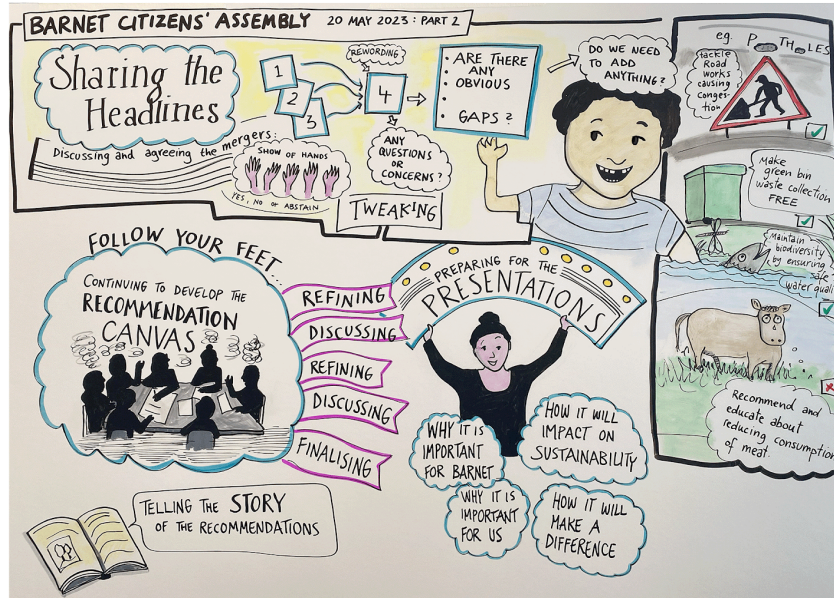 BARNET CITIZENS' ASSEMBLY
20 MAY 2023: PART 2
Sharing the
Headlines
Discussing and agreeing the mergers:
SHOW OF HANDS
YES, NO OR ABSTAIN
1
2
3
REWORDING
4
ANY
QUESTIONS
OR
CONCERNS?
TWEAKING
ARE THERE
ANY
OBVIOUS
GAPS?
DO WE NEED
TO ADD
ANYTHING?
eg. POTHOLES
tackle
Road
works
causing
conges-
tion
Make
green bin
waste collection
FREE
Maintain
biodiversity
by ensuring
safe
water
Recommend and
educate about
reducing consumption
of meat.
FOLLOW YOUR FEET...
CONTINUING TO DEVELOP THE
RECOMMENDATION
CANVAS
REFINING
DISCUSSING
REFINING
DISCUSSING
FINALISING
PREPARING FOR THE
PRESENTATIONS
WHY IT IS
IMPORTANT
FOR BARNET
HOW IT WILL
IMPACT ON
SUSTAINABILITY
WHY IT IS
IMPORTANT
FOR US
HOW IT WILL
MAKE A
DIFFERENCE
TELLING THE STORY
OF THE RECOMMENDATIONS